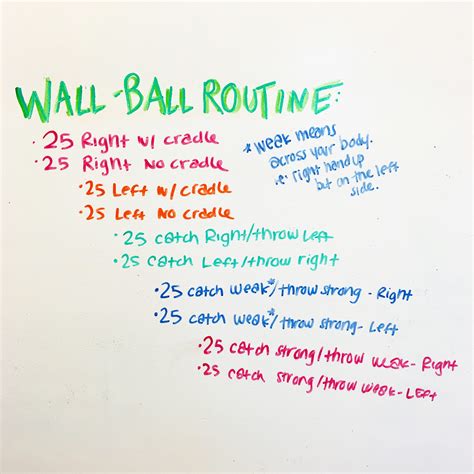 WALL-BALL ROUTINE:
• 25 Right w/ cradle
• 25 Right No cradle
* weak means
across your body.
ie: right hand up
but on the left
side.
• 25 Left w/ cradle
• 25 Left No cradle
• 25 catch Right/throw Left
• 25 catch Left/throw right
• 25 catch weak*/throw strong - Right
• 25 catch weak*/throw strong - Left
• 25 catch strong/throw weak - Right
• 25 catch strong/throw weak - Left